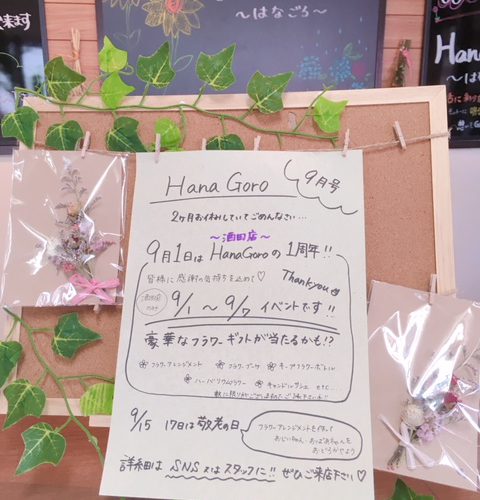 来ます
～はなごろ～
Hana
Hana Goro
9月号
2ヶ月お休みしていてごめんなさい…
～酒田店～
9月1日は HanaGoroの 1周年!!
皆様に感謝の気持ちを込めて♡
Thankyou
酒田店
9/1 ～ 9/7 イベントです!!
豪華なフラワーギフトが当たるかも!?
フラワーアレンジメント
フラワーブーケ
キープフラワーボトル
ハーバリウムフラワー
キャンドルグラス
etc...
数に限りがございますのでご了承下さいませ!!
9/15
17日は敬老の日
フラワーアレンジメントを作って
おじいちゃん・おばあちゃんを
おどろかせよう
詳細は SNS 又は スタッフに!! ぜひご来店下さい♡